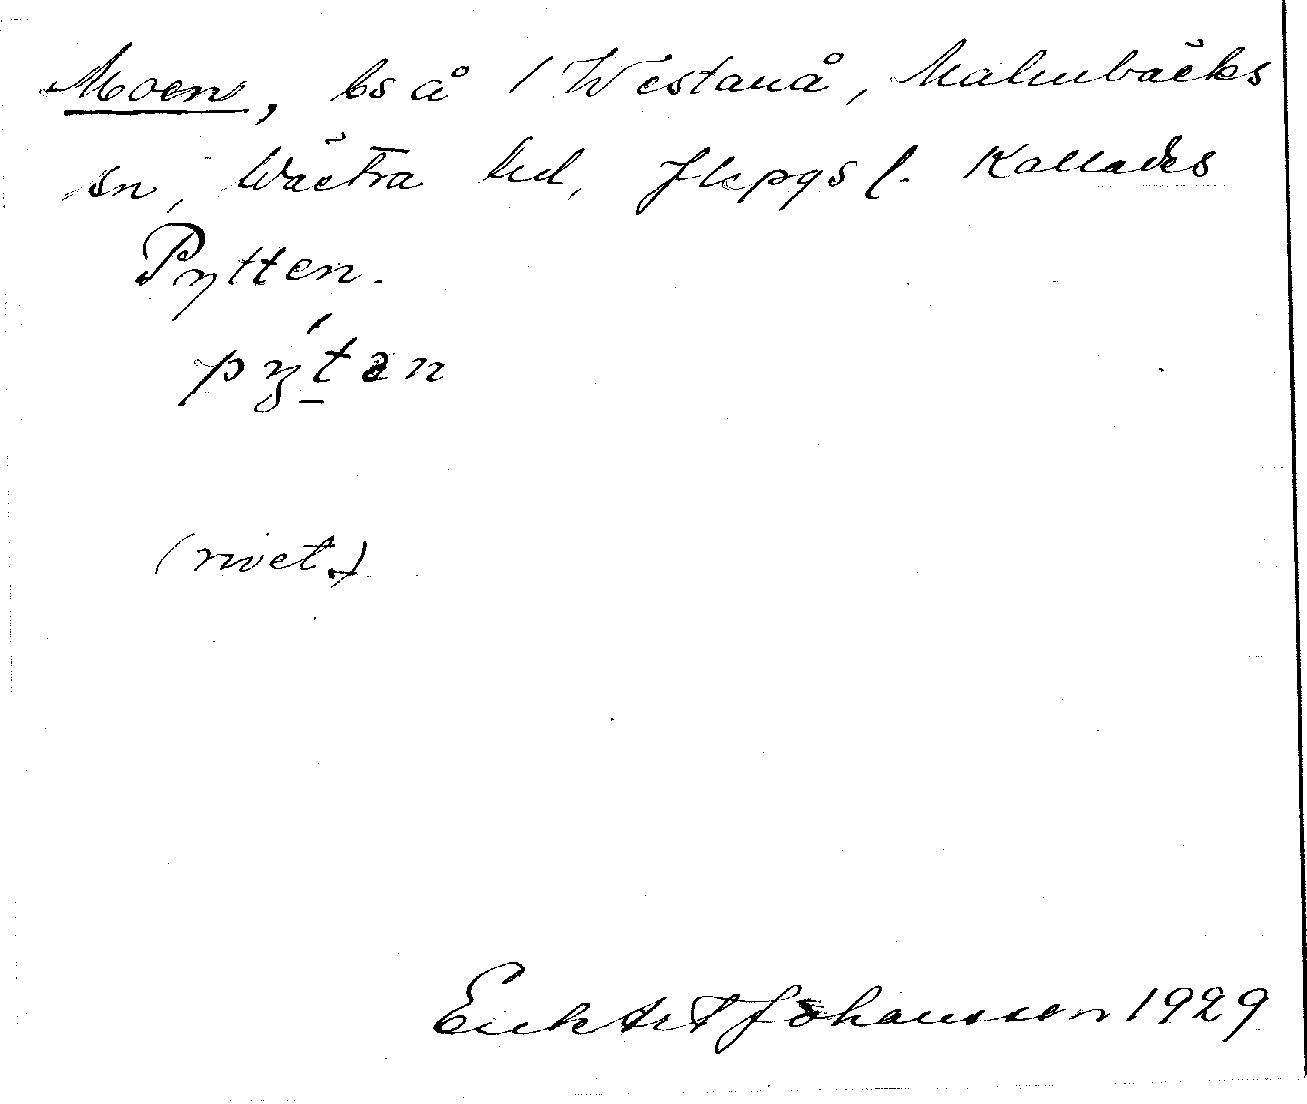 Moen, bs å 1 Westanå, Malmbäcks
sn, Wästra hd, Jkpgs l. Kallades
Pytten.
pýtən
(rivet)
Johansson 1929